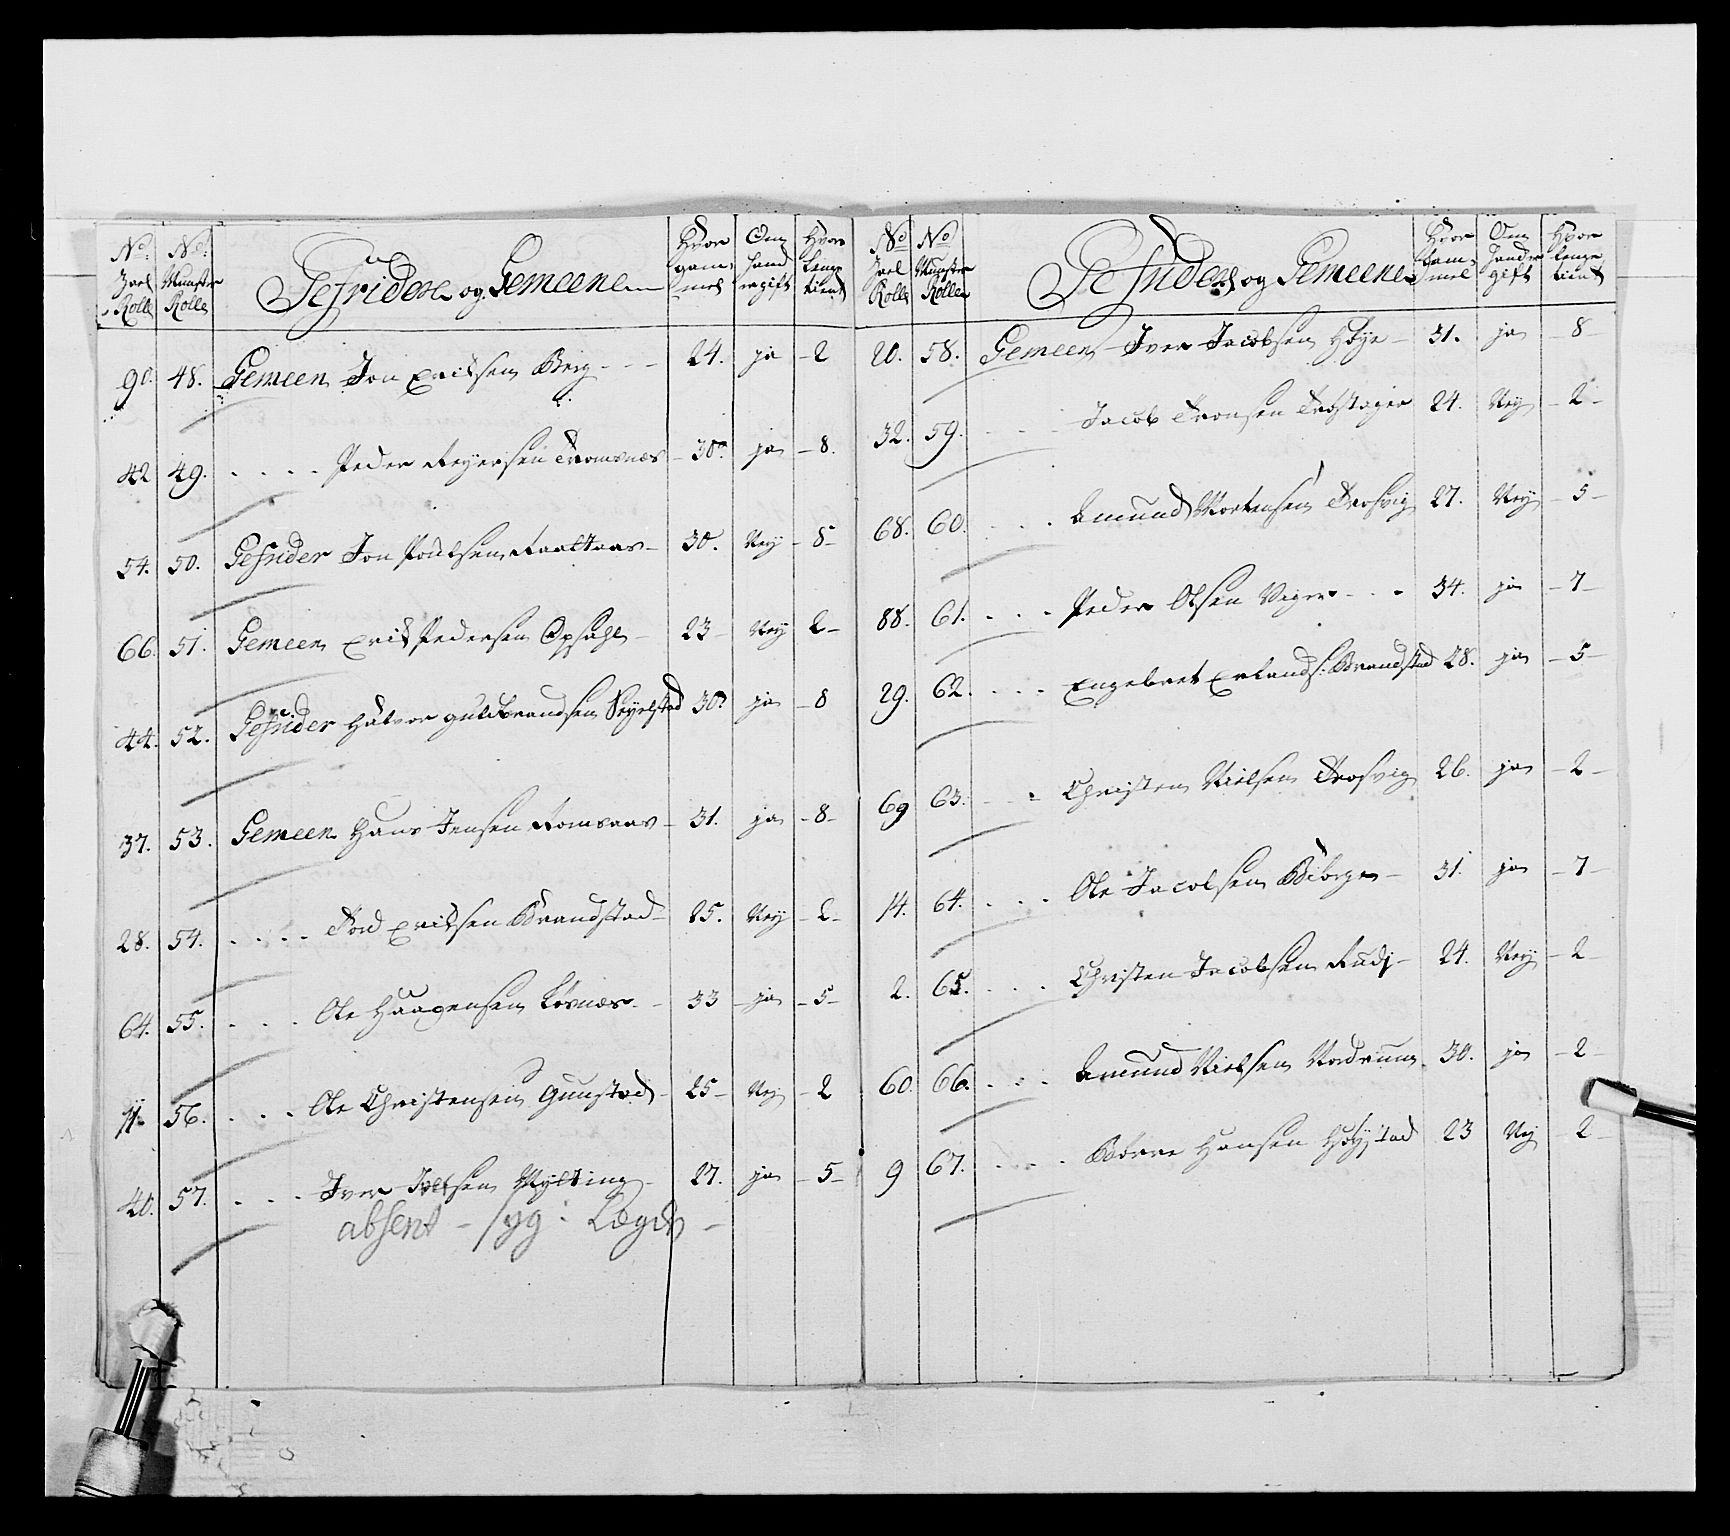 No. Zael Rolle | No. Munster Rolle | Gefridere og Gemeene | Hvor gammel | Om hand er gift | Hvor lenge tient
90. 48. Gemeen Jon Erichsen Berg - - - 24. ja - 2
42 49. . . . . Peder Reyersen Tromsnæs - 30. ja - 8.
54. 50. Gefrider Jon Poulsen Raaltaas - 30. Ney - 8 -
66. 51. Gemeen Erich Pedersen Opsahl - 23 - Ney 2 -
44. 52. Gefrider Halvor Guldbrandsen Seyelstad 30. ja - 8
37. 53. Gemeen Hans Jensen Romsaas - 31. ja - 8 -
28. 54. . . . . Tord Erichsen Brandstad - 25. Ney - 2 -
64. 55. . . . Ole Haagensen Løsnæs - 33 - ja - 5 -
11. 56. . . . Ole Christensen Gunstad - 25 - Ney - 2
40. 57. . . . Iver Nylting - 27. ja - 5 -
absent - syg i Lægdt -
No Zael Rolle | No Munster Rolle | Gefridere og Gemeene | Hvor Gammel | Om Hand er gift | Hvor lenge tient
20. 58. Gemeen - Iver Jacobsen Høye - 31. ja - 8 -
32. 59. . . . . Jacob Tronsen Trostager 24. Ney - 2 -
68. 60. . . . . Amund Mortensen Trosvig 27. Ney - 5 -
88. 61. . . . Peder Olsen Viger - - - 34. ja - 7 -
29. 62. . . . . Engebret Erlands: Brandstad 28. ja - 5 -
69 63. - - - Christen Nielsen Trosvig 26. ja - 2 -
14. 64. . . . . Ole Jacobsen Biberge - 31. ja - 7 -
2. 65. . . . . Christen Jacobsen Rudj - 24. Ney - 2 -
60. 66. . . . Amund Nielsen Nadrum 30. ja - 2 -
9 67. . . . . Børre Hansen Høystad 23 Ney - 2 -